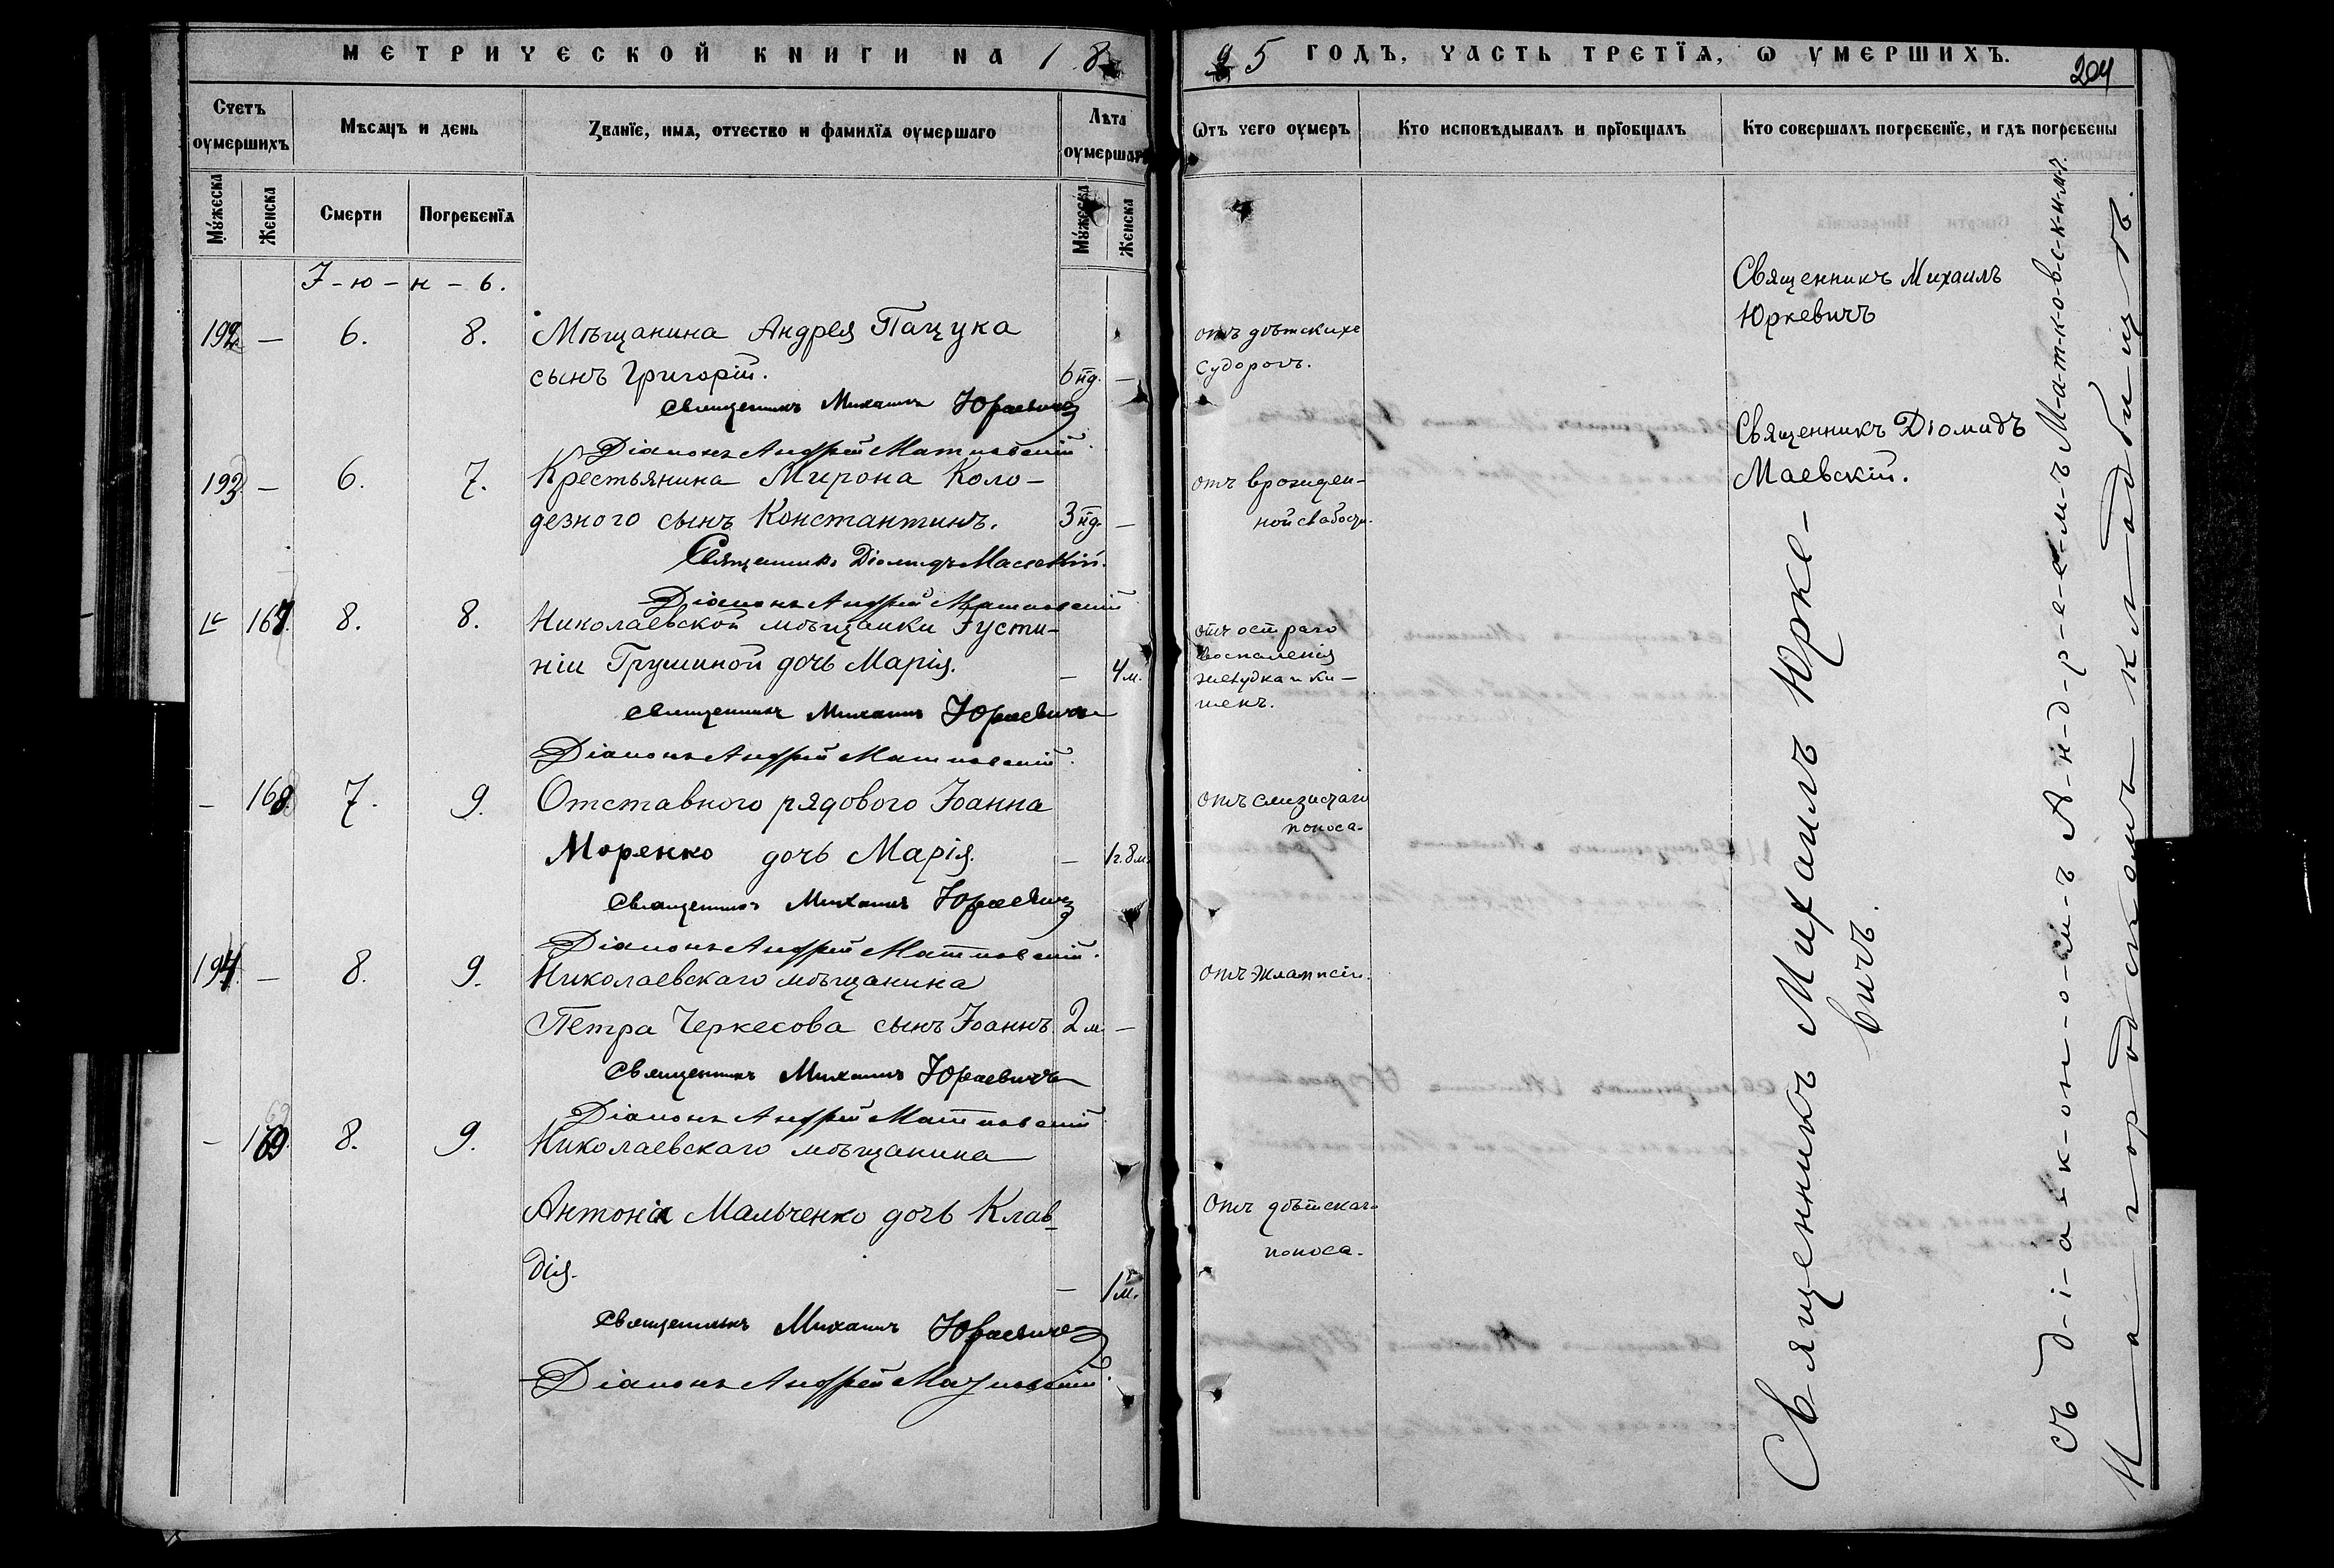 МЕТРИЧЕСКОЙ КНИГИ НА 18
95 ГОДЪ, ЧАСТЬ ТРЕТІЯ, Ѡ УМЕРШИХЪ.
204
Счетъ оумершихъ
Мѣсяцъ и день
Званїе, имя, отчество и фамилїя оумершаго
Лѣта оумершаго
Ѿтъ чего оумеръ
Кто исповѣдывалъ и прїобщалъ
Кто совершалъ погребенїе, и гдѣ погребены
Мужеска
Женска
Смерти
Погребенїя
Мужеска
Женска
І-ю-н-ь.
192 — 6. 8. Мѣщанина Андрея Пацука
сынъ Григорій. 6 нд. —
отъ дѣтскихъ
судорогъ.
Священникъ Михаилъ
Юркевичъ
Священникъ Михаилъ Юркевичъ
Діаконъ Андрей Матковскій.
193 — 6. 7. Крестьянина Мирона Коло-
дезного сынъ Константинъ. 3 нд. —
отъ врожден-
ной слабости.
Священникъ Діомидъ
Маевскій.
Священникъ Діомидъ Маевскій.
Діаконъ Андрей Матковскій
167. 8. 8. Николаевской мѣщанки Іусти-
ніи Грушиной дочь Марія. — 4 м.
отъ остраго
воспаленія
желудка и ки-
шекъ.
Священникъ Михаилъ Юркевичъ
Діаконъ Андрей Матковскій.
— 168. 7. 9. Отставного рядового Іоанна
Моренко дочь Марія. — 1 г. 8 м.
отъ слизистаго
поноса.
Священникъ Михаилъ Юркевичъ
Діаконъ Андрей Матковскій.
194. — 8. 9. Николаевскаго мѣщанина
Петра Черкесова сынъ Іоаннъ. 2 м. —
отъ эклампсіи.
Священникъ Михаилъ Юркевичъ
Діаконъ Андрей Матковскій
— 169. 8. 9. Николаевскаго мѣщанина
Антонія Мальченко дочь Клав-
дія. — 1 м.
Отъ дѣтскаго
поноса.
Священникъ Михаилъ Юркевичъ
Діаконъ Андрей Матковскій.
Священникъ Михаилъ Юрке-
вичъ.
съ д-і-а-к-о-н-о-м-ъ А-н-д-р-е-е-м-ъ М-а-т-к-о-в-с-к-и-м-ъ.
На городскомъ кладбищѣ.